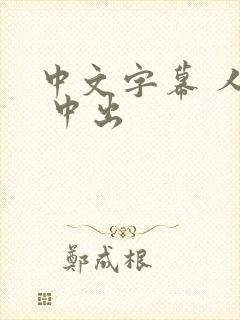 中文字幕 人
中出
鄭成根